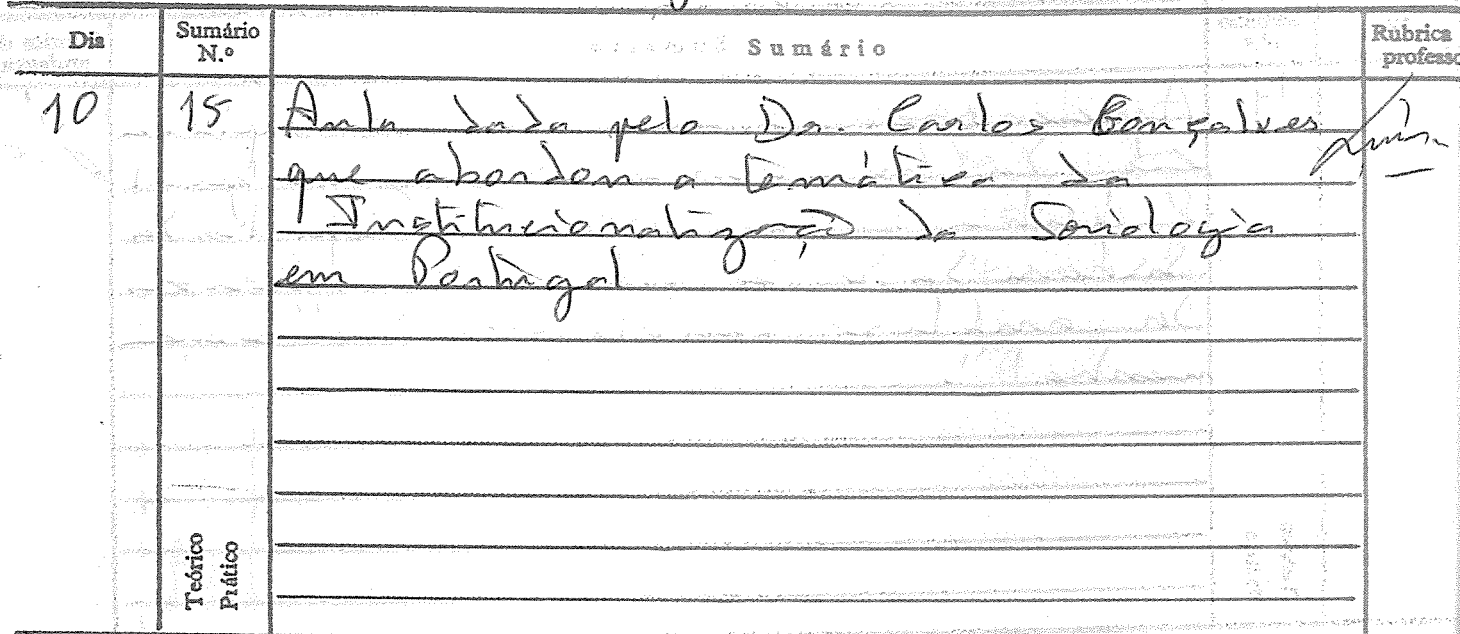 Dia Sumário N.º Sumário Rubrica professo
10 15 Aula dada pelo Dr. Carlos Gonçalves
que abordou a temática da
Institucionalização da Sociologia
em Portugal
Teórico
Prático